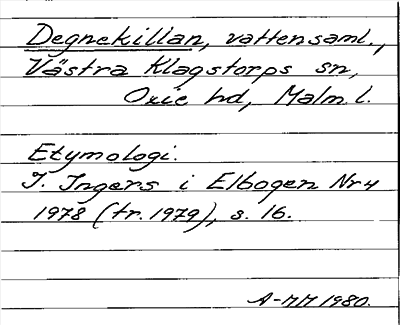 Degnekillan, vattensaml.,
Västra Klagstorps sn,
Oxie hd, Malm. l.
Etymologi.
I. Ingers i Elbogen Nr 4
1978 (tr. 1979), s. 16.
A-MM 1980.